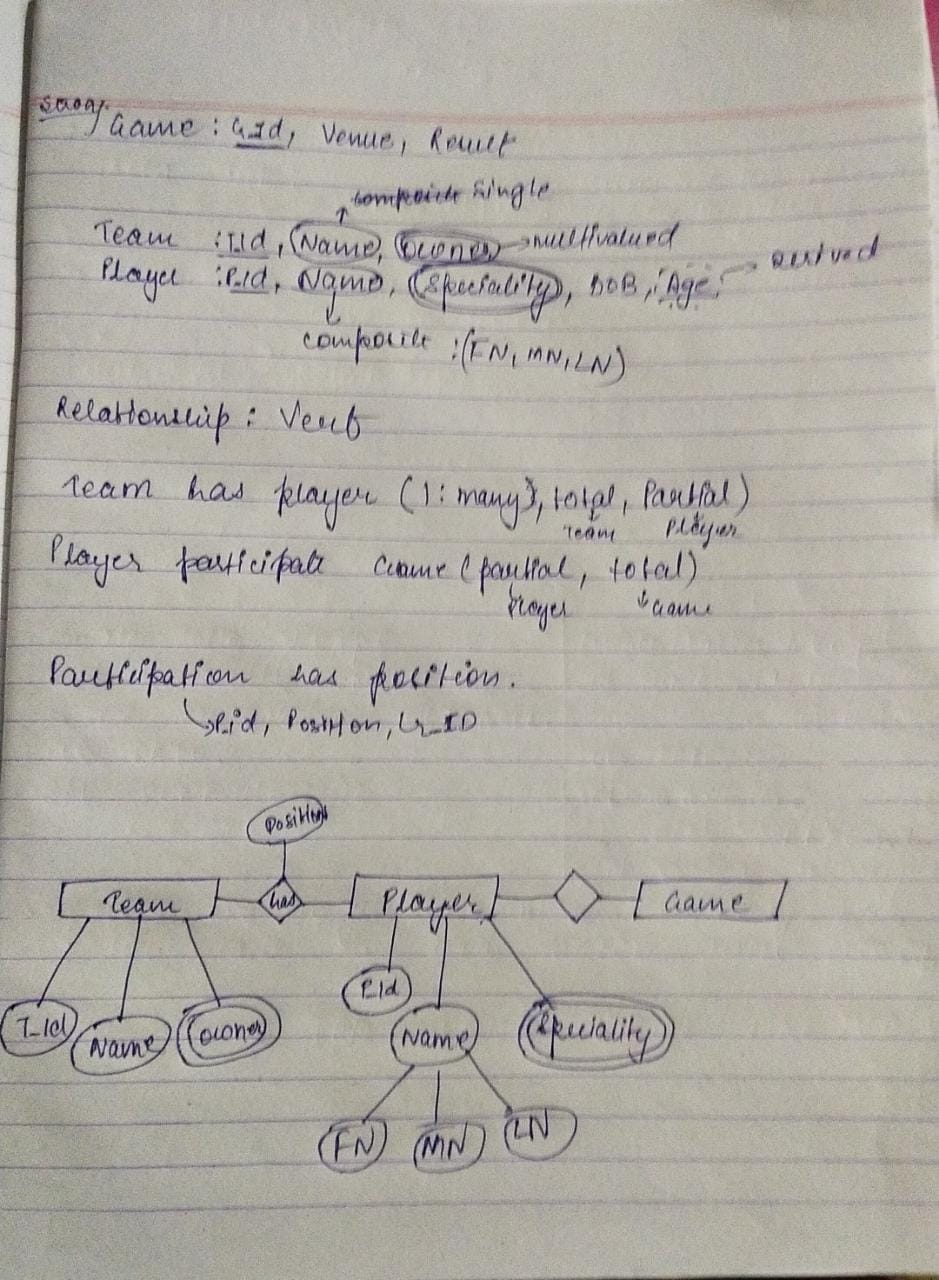 Game : G_Id, Venue, Result
composite Single
Team : T_Id, Name, Owner → multivalued
Player : P_Id, Name, Speciality, DOB, Age → derived
composite : (FN, MN, LN)
Relationship : Verb
Team has player (1 : many), total, Partial)
Team Player
Player participate Game (partial, total)
Player Game
Participation has position.
P_id, Position, G_ID
Position
Team has Player Game
P_Id
T_Id Name Owner Name Speciality
FN MN LN